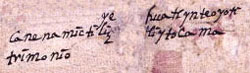 ye
cane namictiliz huatlynteoyoti
trimonio tliytocama